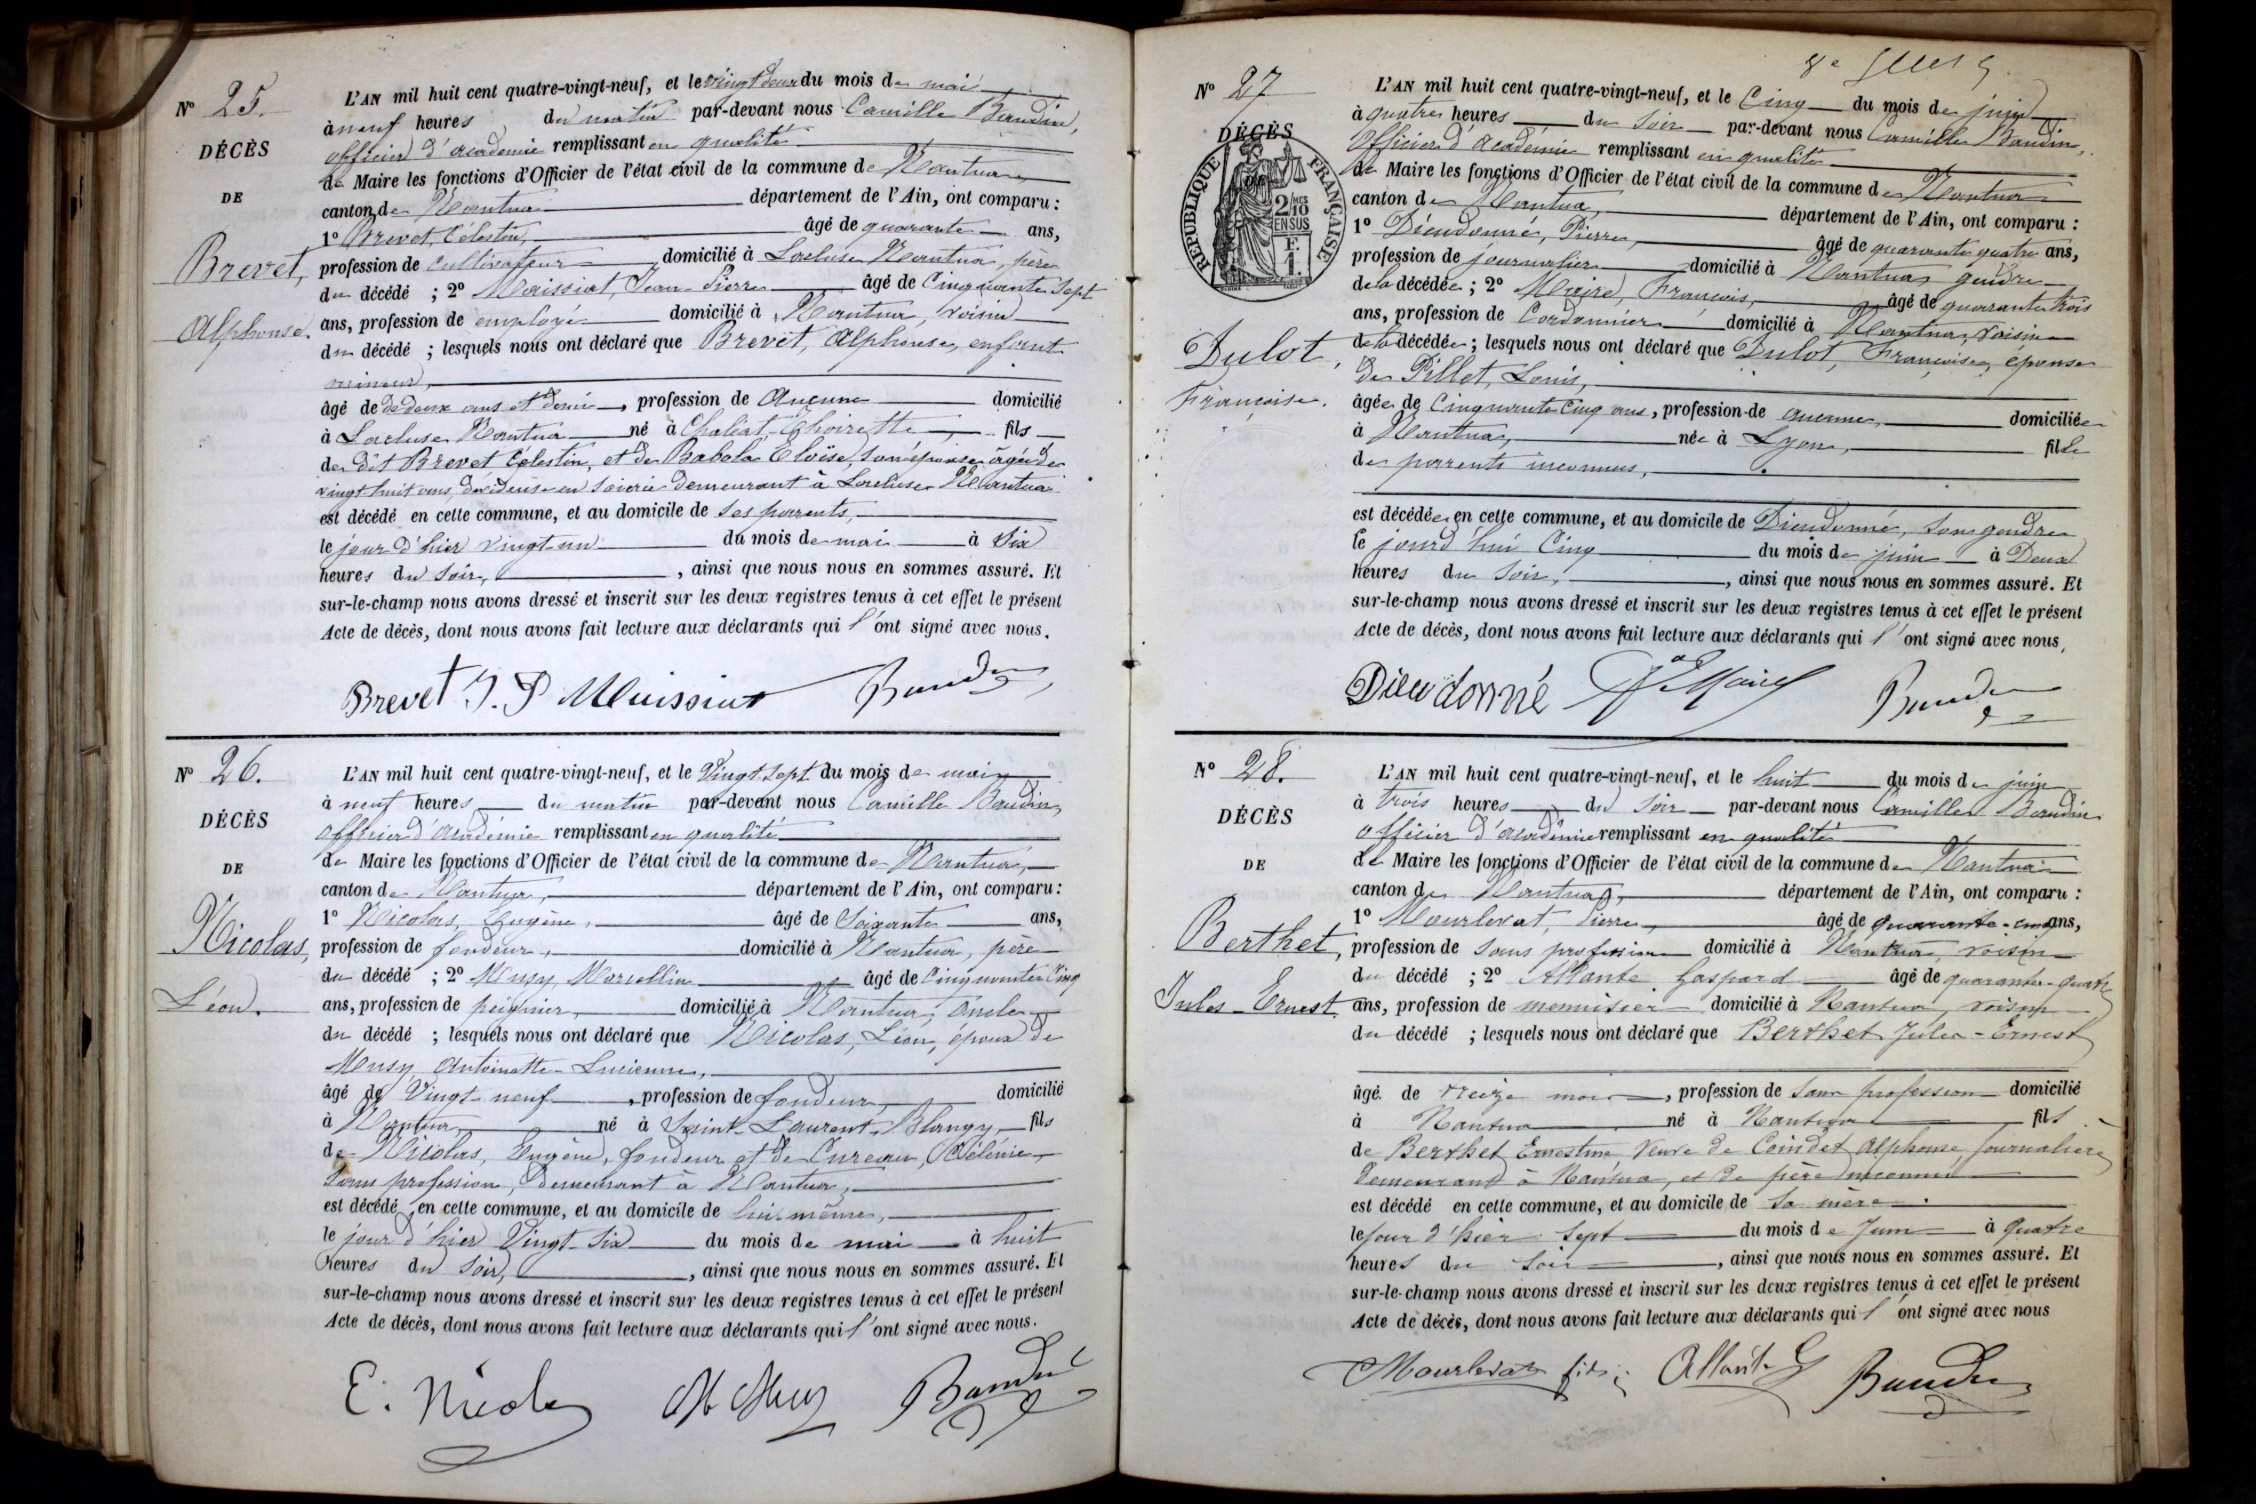 N° 25.
DÉCÈS
DE
Brevet,
Alphonse.
L'AN mil huit cent quatre-vingt-neuf, et le vingt deux du mois de mai
à neuf heures du matin par-devant nous Camille Baudin,
officier d'académie remplissant en qualité
de Maire les fonctions d'Officier de l'état civil de la commune de Nantua
canton de Nantua département de l'Ain, ont comparu :
1° Brevet, Célestin, âgé de quarante ans,
profession de cultivateur domicilié à Lacluse Nantua, père
du décédé ; 2° Maissiat, Jean-Pierre âgé de Cinquante sept
ans, profession de employé domicilié à Nantua, voisin
du décédé ; lesquels nous ont déclaré que Brevet, Alphonse, enfant
mineur,
âgé de de deux ans et demi, profession de Aucune domicilié
à Lacluse Nantua né à Chaléat-Thoirette, fils
de dit Brevet Célestin, et de Babola Eloïse, son épouse âgée de
vingt huit ans, dévideuse en soierie demeurant à Lacluse Nantua
est décédé en cette commune, et au domicile de ses parents,
le jour d'hier vingt-un du mois de mai à Six
heures du soir, , ainsi que nous nous en sommes assuré. Et
sur-le-champ nous avons dressé et inscrit sur les deux registres tenus à cet effet le présent
Acte de décès, dont nous avons fait lecture aux déclarants qui l'ont signé avec nous.
Brevet J. P Maissiat Baudin
N° 26.
DÉCÈS
DE
Nicolas,
Léon.
L'AN mil huit cent quatre-vingt-neuf, et le Vingt-sept du mois de mai
à neuf heures du matin par-devant nous Camille Baudin,
officier d'académie remplissant en qualité
de Maire les fonctions d'Officier de l'état civil de la commune de Nantua,
canton de Nantua, département de l'Ain, ont comparu :
1° Nicolas, Eugène, âgé de Soixante ans,
profession de fondeur, domicilié à Nantua, père
du décédé ; 2° Musy, Marcellin âgé de Cinquante Cinq
ans, profession de peignier, domicilié à Nantua, oncle
du décédé ; lesquels nous ont déclaré que Nicolas, Léon, époux de
Musy Antoinette-Lucienne,
âgé de Vingt neuf, profession de fondeur, domicilié
à Nantua, né à Saint-Laurent-Blangy, fils
de Nicolas, Eugène, fondeur et de Cureau, Mélénie
sans profession, demeurant à Nantua,
est décédé en cette commune, et au domicile de lui-même,
le jour d'hier Vingt-six du mois de mai à huit
heures du soir, , ainsi que nous nous en sommes assuré. Et
sur-le-champ nous avons dressé et inscrit sur les deux registres tenus à cet effet le présent
Acte de décès, dont nous avons fait lecture aux déclarants qui l'ont signé avec nous.
E. Nicolas M Musy Baudin
N° 27
DÉCÈS
DE
RÉPUBLIQUE FRANÇAISE
2/10
EN SUS
F.
1.
Dulot,
Françoise.
L'AN mil huit cent quatre-vingt-neuf, et le Cinq du mois de juin
à quatre heures du soir par-devant nous Camille Baudin,
Officier d'académie remplissant en qualité
de Maire les fonctions d'Officier de l'état civil de la commune de Nantua
canton de Nantua, département de l'Ain, ont comparu :
1° Dieudonné, Pierre, âgé de quarante quatre ans,
profession de journalier domicilié à Nantua, gendre
de la décédée ; 2° Maire, François, âgé de quarante trois
ans, profession de Cordonnier domicilié à Nantua, voisin
de la décédée ; lesquels nous ont déclaré que Dulot, Françoise, épouse
de Pillet, Louis,
âgée de Cinquante Cinq ans, profession de aucune, domiciliée
à Nantua, née à Lyon, fille
de parents inconnus,
est décédée en cette commune, et au domicile de Dieudonné, son gendre
le jourd'hui Cinq du mois de juin à Deux
heures du soir, , ainsi que nous nous en sommes assuré. Et
sur-le-champ nous avons dressé et inscrit sur les deux registres tenus à cet effet le présent
Acte de décès, dont nous avons fait lecture aux déclarants qui l'ont signé avec nous,
Dieudonné Maire Baudin
N° 28.
DÉCÈS
DE
Berthet,
Jules-Ernest.
L'AN mil huit cent quatre-vingt-neuf, et le huit du mois de juin
à trois heures du soir par-devant nous Camille Baudin
officier d'académie remplissant en qualité
de Maire les fonctions d'Officier de l'état civil de la commune de Nantua
canton de Nantua, département de l'Ain, ont comparu :
1° Mourlevat, Pierre, âgé de quarante-cinq ans,
profession de sans profession domicilié à Nantua, voisin
du décédé ; 2° Allante Gaspard âgé de quarante-quatre
ans, profession de menuisier domicilié à Nantua, voisin
du décédé ; lesquels nous ont déclaré que Berthet Jules-Ernest
âgé de treize mois, profession de sans profession domicilié
à Nantua né à Nantua fils
de Berthet Ernestine Veuve de Coindet Alphonse, Journalière
demeurant à Nantua, et de père inconnu
est décédé en cette commune, et au domicile de sa mère.
le jour d'hier sept du mois de Juin à quatre
heures du soir , ainsi que nous nous en sommes assuré. Et
sur-le-champ nous avons dressé et inscrit sur les deux registres tenus à cet effet le présent
Acte de décès, dont nous avons fait lecture aux déclarants qui l'ont signé avec nous
Mourlevat fils; Allante G Baudin